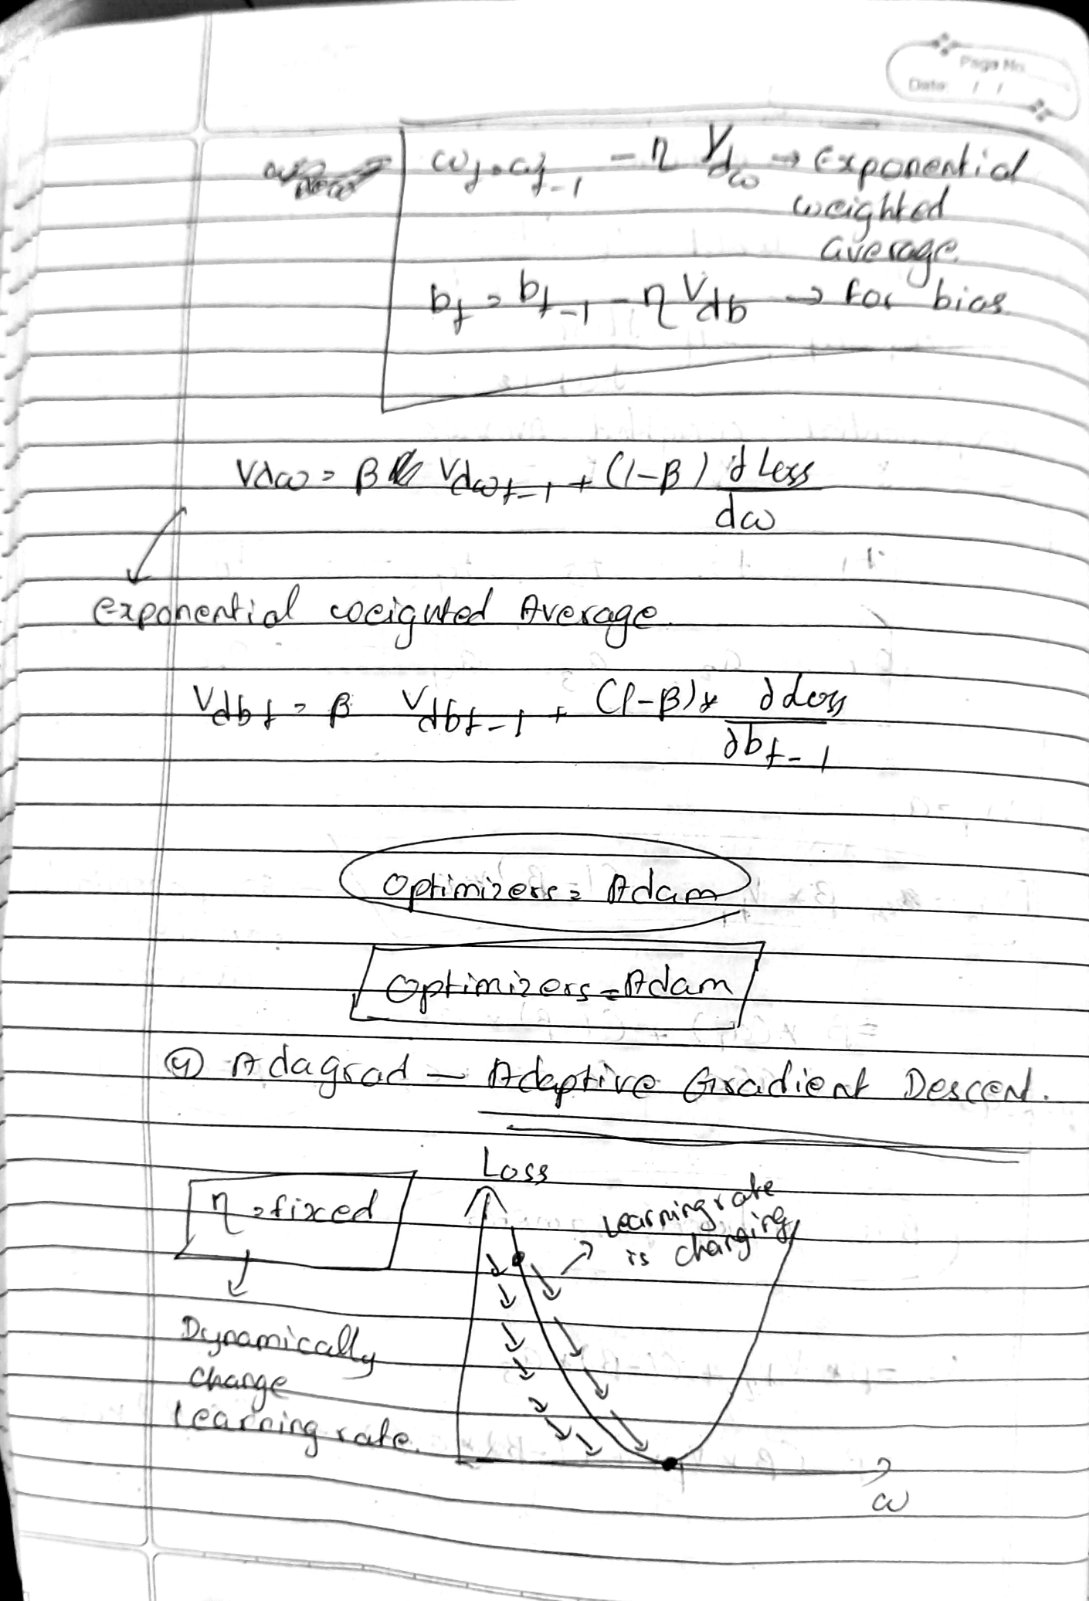 Page No.
Date: / /
ω_t = ω_t-1 - η V_dω → Exponential
weighted
average.
b_t = b_t-1 - η V_db → for bias
V_dω = β V_dω_t-1 + (1-β) ∂Loss / dω
exponential weighted Average.
V_db_t = β V_db_t-1 + (1-β) * ∂Loss / ∂b_t-1
Optimizers = Adam
Optimizers = Adam
④ Adagrad — Adaptive Gradient Descent.
Loss
η = fixed
Learning rate
is changing
Dynamically
change
Learning rate.
ω